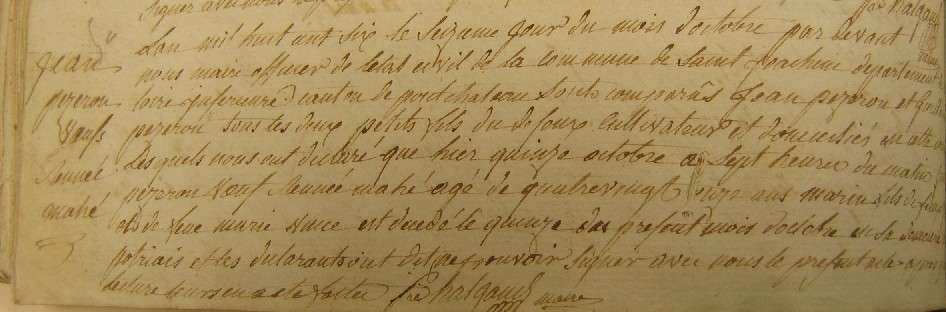 signer avec nous
Jean L'an mil huit cent six le seizieme jour du mois d'octobre par devant
nous maire officier de l'etat civil de la commune de saint Joachim departement
pezeron loire inferieure canton de pontchateau sonts comparus Jean pezeron et
veuf pezeron tous les deux petits fils du defunt cultivateur et domiciliés en cette
Lesquels nous ont déclaré que hier quinze octobre a sept heures du matin
pezeron veuf mahé agé de quatrevingt onze ans marin fils de
mahé et de feue marie est decedé le quinze du present mois d'octobre en sa demeure
et les declarants ont dit ne pouvoir signer avec nous le present acte apres
lecture leurs en a eté faitte halgand maire